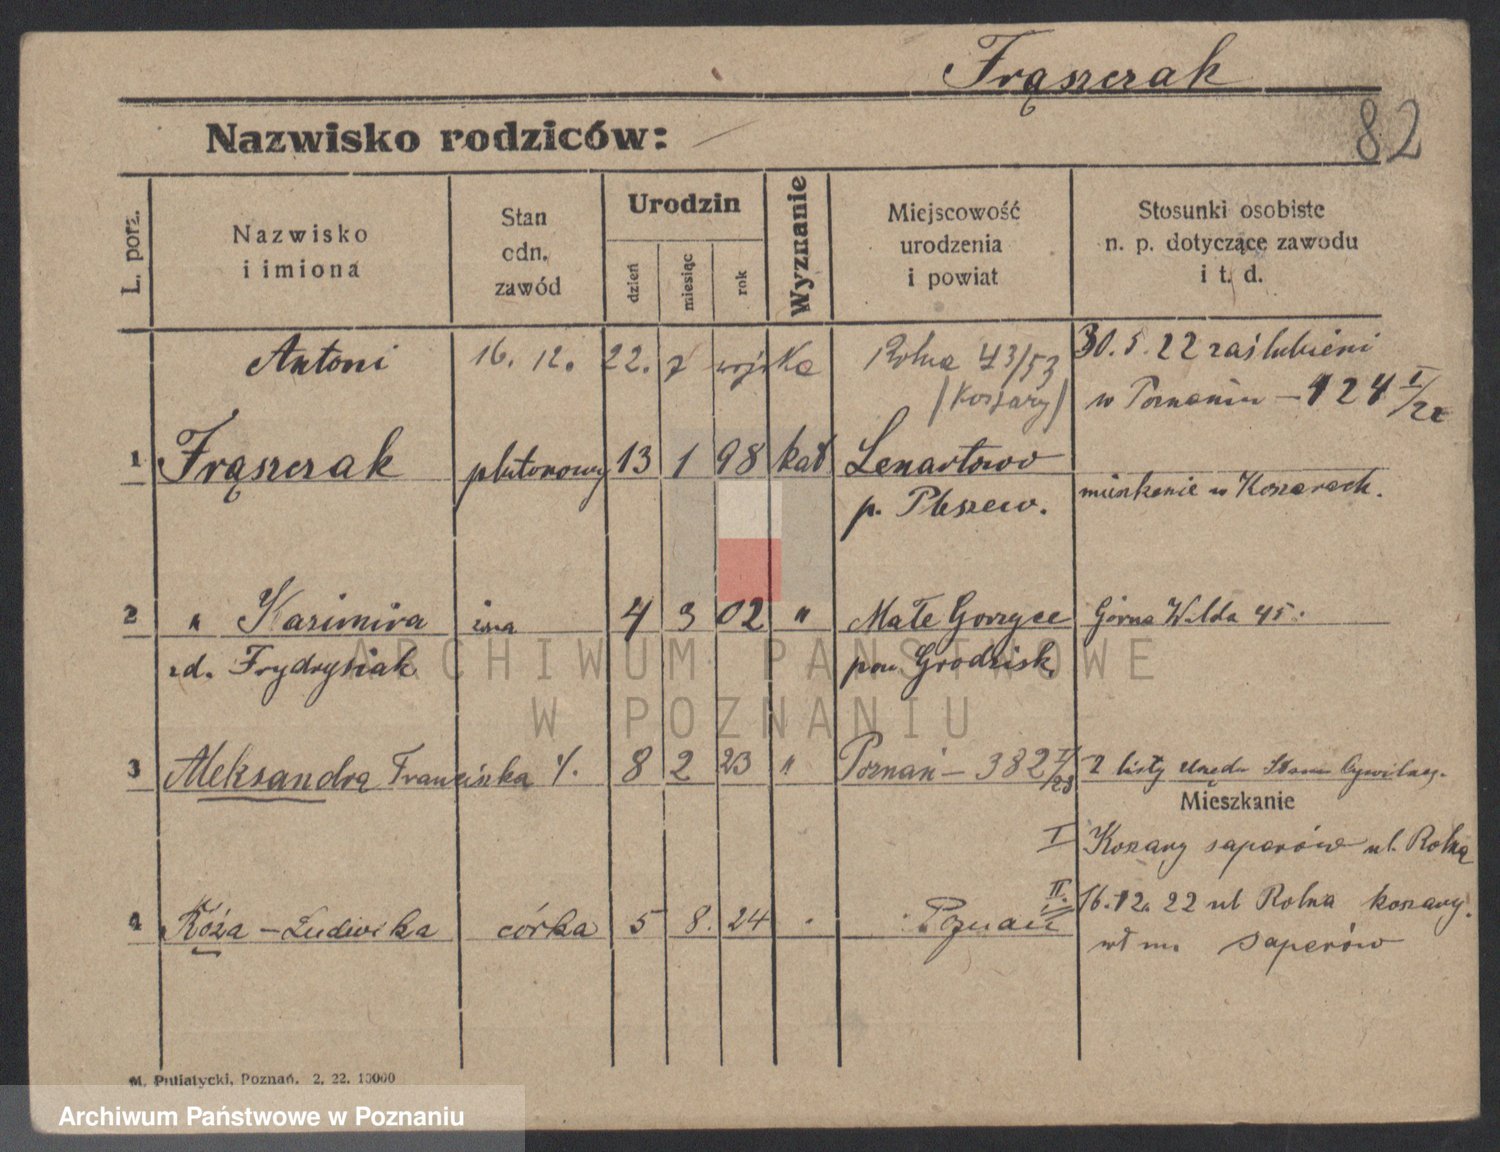 Frąszczak
82
Nazwisko rodziców:
L. porz.
Nazwisko
i imiona
Stan
odn.
zawód
Urodzin
dzień
miesiąc
rok
Wyznanie
Miejscowość
urodzenia
i powiat
Stosunki osobiste
n. p. dotyczące zawodu
i t. d.
Antoni 16. 12. 22. z wojska Rolna 43/53 30. 5. 22 zaślubieni
(Koszary) w Poznaniu – 124 I/22
1 Frąszczak plutonowy 13 1 98 kat Lenartowo
p. Pleszew. mieszkanie w Koszarach.
2 " Kazimira żona 4 3 02 " Małe Gorzyce Górna Wilda 45.
zd. Frydrysiak pow. Grodzisk
ARCHIWUM PAŃSTWOWE
W POZNANIU
3 Aleksandra Franciszka 8 2 23 " Poznań – 382 I/23 z listy Urzędu Stanu Cywilneg.
Mieszkanie
I Koszary saperów ul. Rolna
II. 16. 12. 22 ul Rolna koszary.
4 Róża – Ludwika córka 5 8. 24 . Poznań
saperów
M. Putiatycki, Poznań. 2. 22. 10000
Archiwum Państwowe w Poznaniu